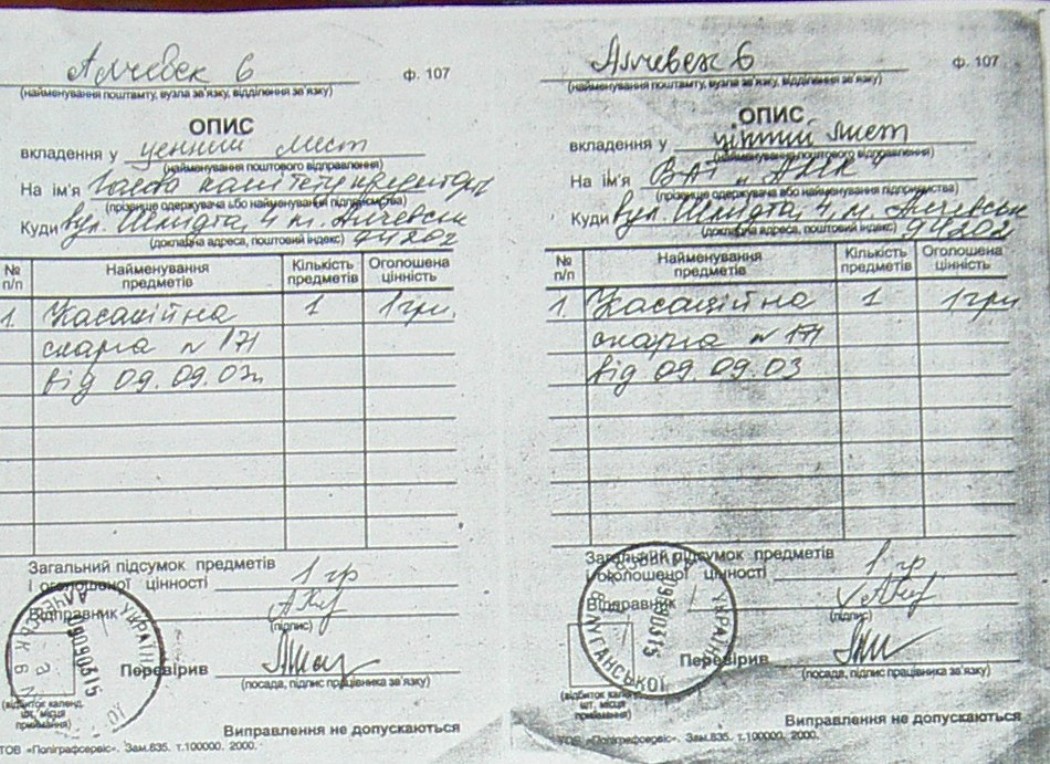 Алчевск 6
ф. 107
(найменування поштамту, вузла зв'язку, відділення зв'язку)
ОПИС
вкладення у ценний лист
(найменування поштового відправлення)
На ім'я Голова комітету кредиторів
(прізвище одержувача або найменування підприємства)
Куди вул. Шмідта, 4 м. Алчевськ
(докладна адреса, поштовий індекс) 94202
№ п/п
Найменування предметів
Кількість предметів
Оголошена цінність
1. Касаційна 1 1 грн.
скарга № 171
від 09.09.03
Загальний підсумок предметів
і оголошеної цінності 1 гр
Відправник
(підпис)
Перевірив
(посада, підпис працівника зв'язку)
(відбиток календ. шт. місця приймання)
Виправлення не допускаються
ТОВ «Поліграфсервіс». Зам.835. т.100000. 2000.
Алчевск 6
ф. 107
(найменування поштамту, вузла зв'язку, відділення зв'язку)
ОПИС
вкладення у цінний лист
(найменування поштового відправлення)
На ім'я ВАТ "АМК"
(прізвище одержувача або найменування підприємства)
Куди вул. Шмідта, 4, м. Алчевськ
(докладна адреса, поштовий індекс) 94202
№ п/п
Найменування предметів
Кількість предметів
Оголошена цінність
1. Касаційна 1 1 грн
скарга № 171
від 09.09.03
Загальний підсумок предметів
і оголошеної цінності 1 гр
Відправник
(підпис)
Перевірив
(посада, підпис працівника зв'язку)
(відбиток календ. шт. місця приймання)
Виправлення не допускаються
ТОВ «Поліграфсервіс». Зам.835. т.100000. 2000.
УКРАЇНА
ЛУГАНСЬКОЇ